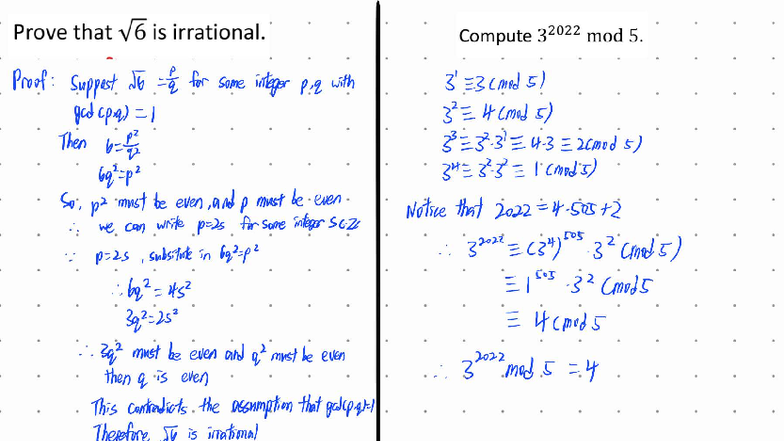 Prove that √6 is irrational.
Proof: Suppest √6 = p/q for some integer p,q with
gcd(p,q) = 1
Then 6 = p²/q²
6q² = p²
So, p² must be even, and p must be even.
∴ we can write p=2s for some integer s∈Z
∵ p=2s, substitute in 6q²=p²
∴ 6q² = 4s²
3q² = 2s²
∴ 3q² must be even and q² must be even
then q is even
This contradicts the assumption that gcd(p,q)=1
Therefore √6 is irrational
Compute 3²⁰²² mod 5.
3¹ ≡ 3 (mod 5)
3² ≡ 4 (mod 5)
3³ ≡ 3²·3¹ ≡ 4·3 ≡ 2 (mod 5)
3⁴ ≡ 3²·3² ≡ 1 (mod 5)
Notice that 2022 = 4·505+2
∴ 3²⁰²² ≡ (3⁴)⁵⁰⁵ · 3² (mod 5)
≡ 1⁵⁰⁵ · 3² (mod 5
≡ 4 (mod 5
∴ 3²⁰²² mod 5 = 4